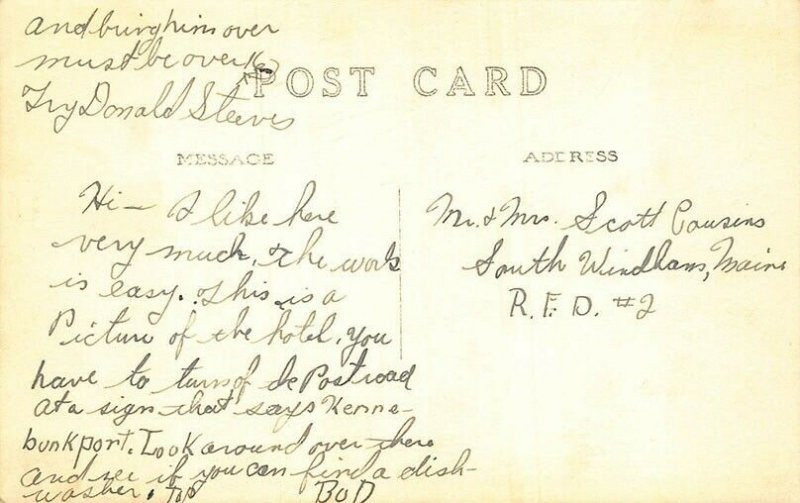 and bring him over
must be over 16
Try Donald Steeves
POST CARD
MESSAGE
ADDRESS
Hi - I like here
very much, & the work
is easy. This is a
Picture of the hotel. You
have to turn of de Postroad
at a sign that says Kenne-
bunkport. Look around over there
and see if you can find a dish-
washer. top BOD
Mr. & Mrs. Scott Cousins
South Windham, Maine
R.F.D. #2